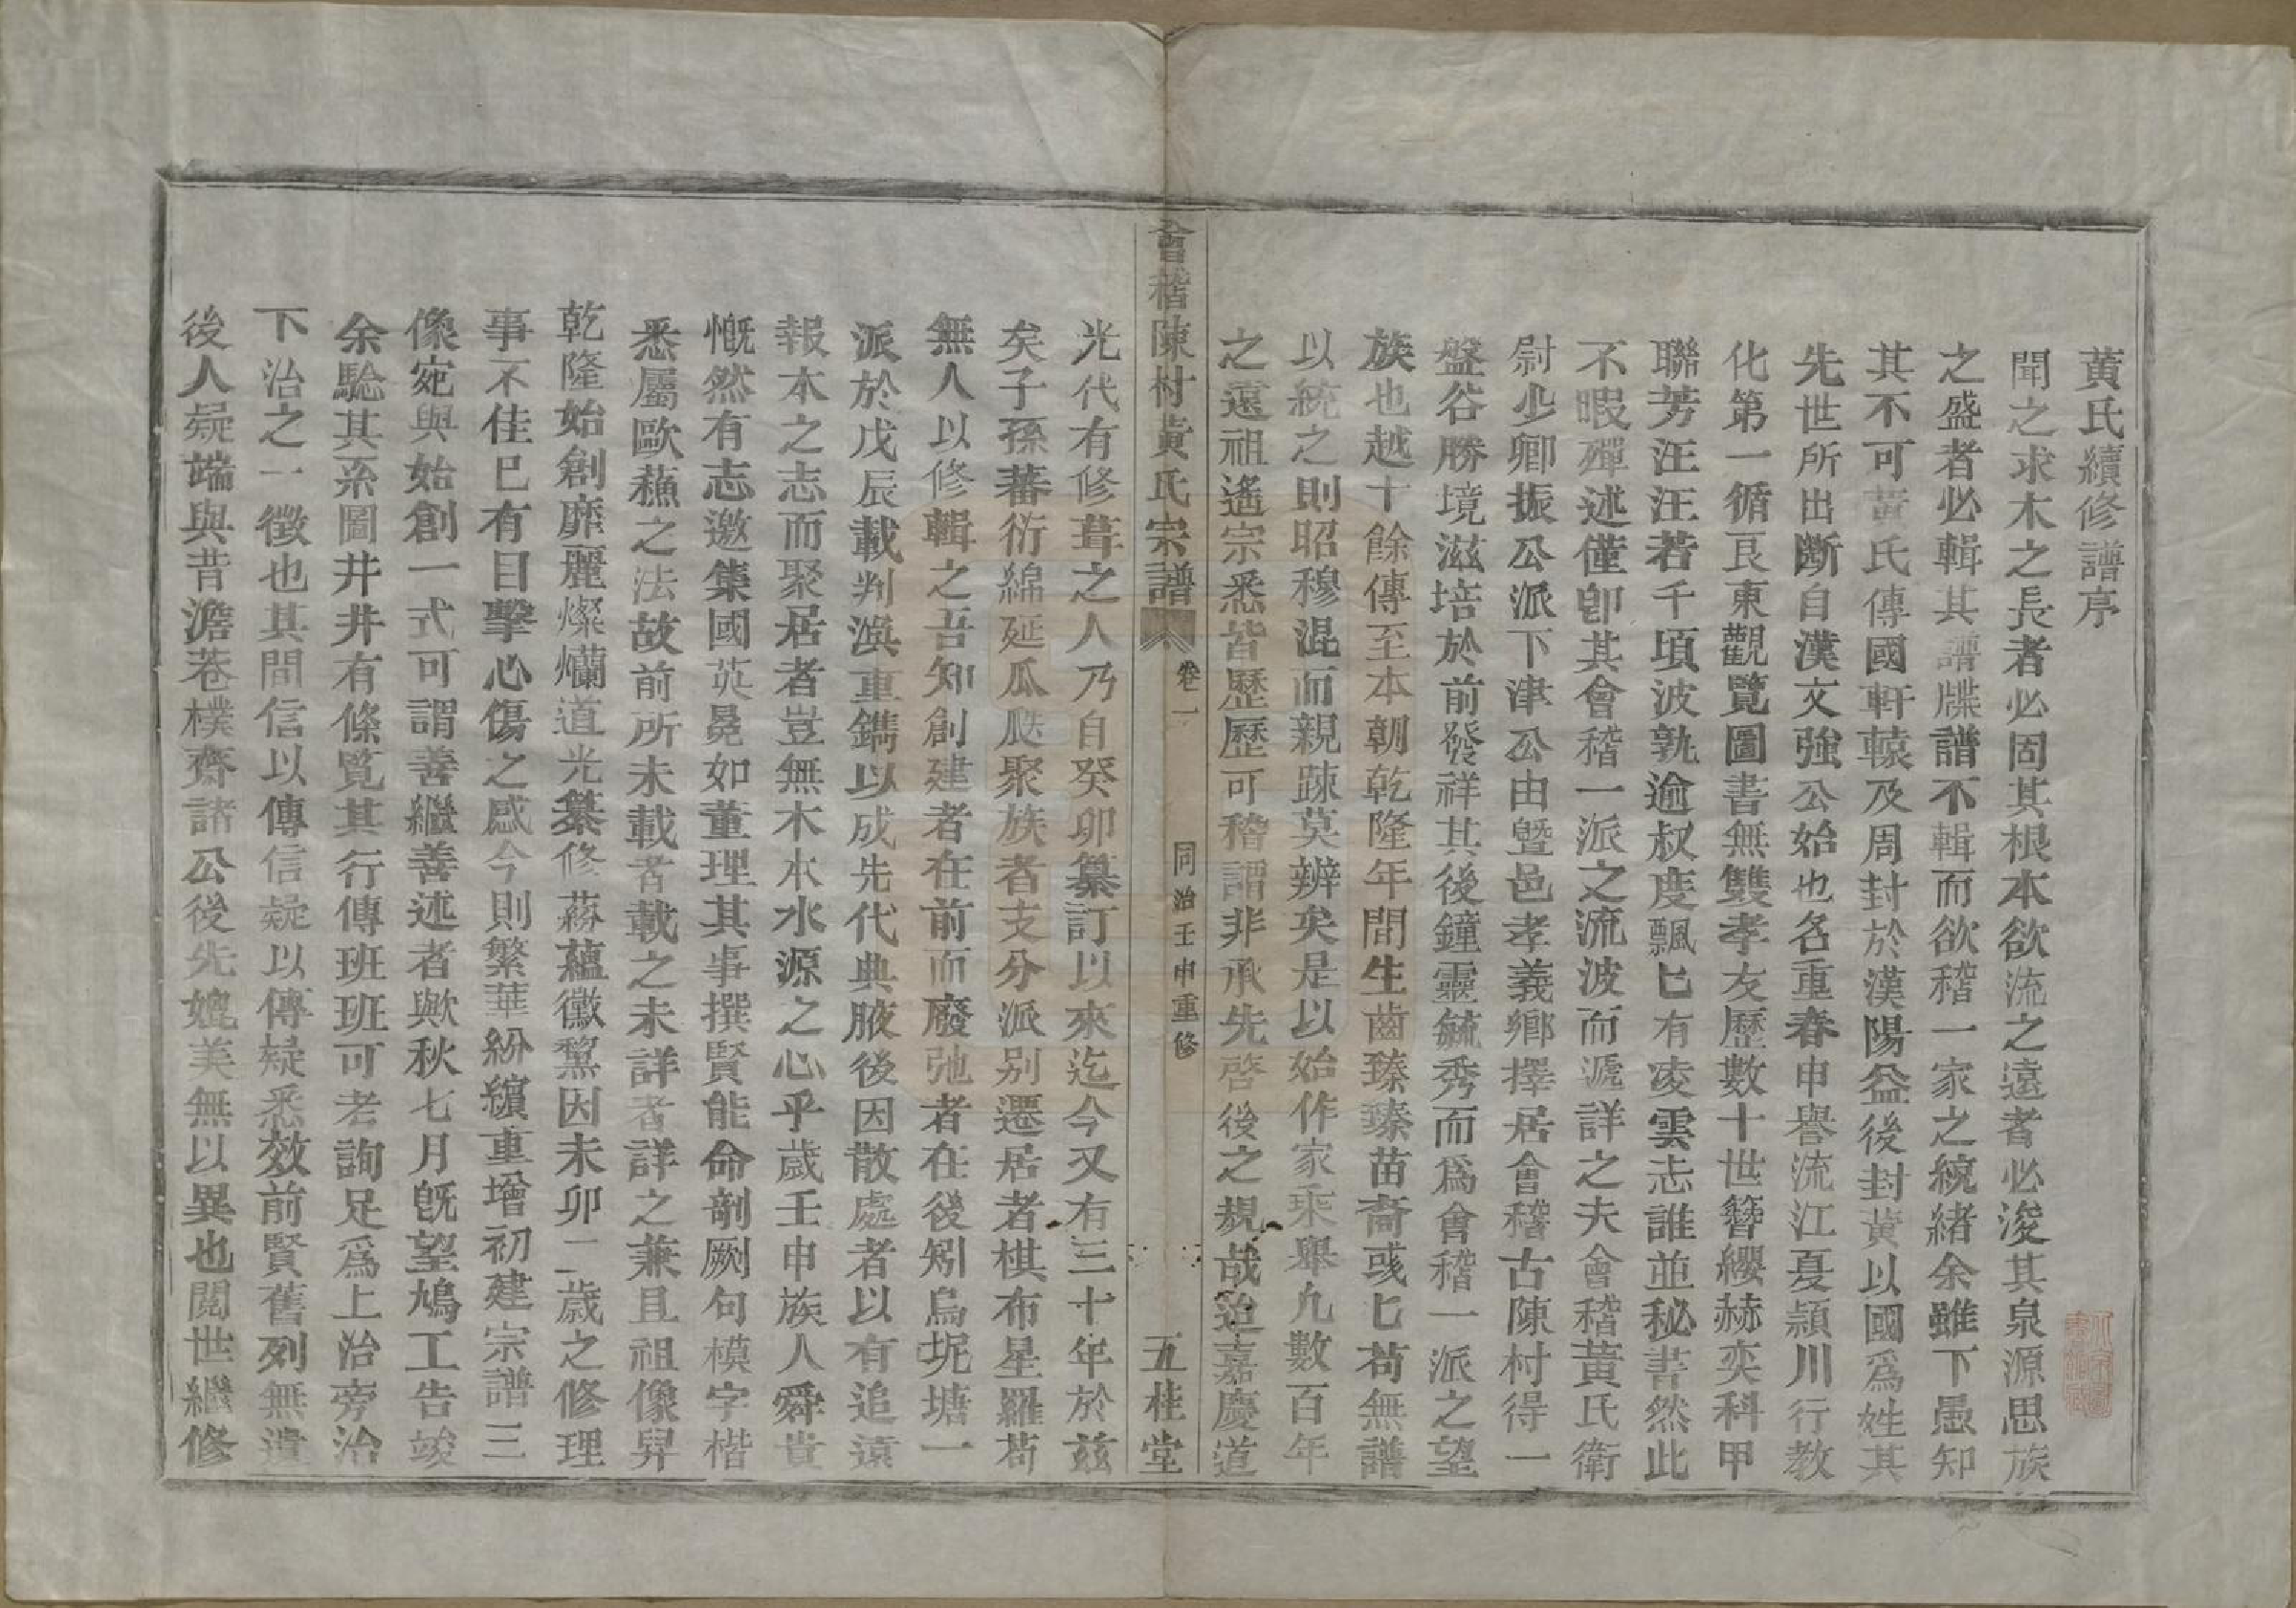 黃氏續修譜序
聞之求木之長者必固其根本欲流之遠者必浚其泉源思族
之盛者必輯其譜牒譜不輯而欲稽一家之統緒余雖下愚知
其不可黃氏傳國軒轅及周封於漢陽益後封黃以國爲姓其
先世所出斷自漢文強公始也名重春申譽流江夏潁川行教
化第一循良東觀覽圖書無雙孝友歷數十世簪纓赫奕科甲
聯芳汪汪若千頃波孰逾叔度飄飄已有凌雲志誰並秘書然此
不暇殫述僅卽其會稽一派之流波而遞詳之夫會稽黃氏衛
尉少卿振公派下津公由暨邑孝義鄉擇居會稽古陳村得一
盤谷勝境滋培於前發祥其後鐘靈毓秀而爲會稽一派之望
族也越十餘傳至本朝乾隆年間生齒臻臻苗裔彧彧苟無譜
以統之則昭穆混而親疎莫辨矣是以始作家乘舉九數百年
之遠祖遙宗悉皆歷歷可稽謂非承先啓後之規哉迨嘉慶道
會稽陳村黃氏宗譜 卷一 同治壬申重修 五桂堂
光代有修葺之人乃自癸卯纂訂以來迄今又有三十年於茲
矣子孫蕃衍綿延瓜瓞聚族者支分派别遷居者棋布星羅苟
無人以修輯之吾知創建者在前而廢弛者在後矧烏坭塘一
派於戊辰載判渙重鐫以成先代典腋後因散處者以有追遠
報本之志而聚居者豈無木本水源之心乎歲壬申族人舜貴
慨然有志邀集國英晃如董理其事撰賢能命剞劂句模字楷
悉屬歐蘓之法故前所未載者載之未詳者詳之兼且祖像昇
乾隆始創靡麗燦爛道光纂修蘊黴黧因未卯二歲之修理
事不佳已有目擊心傷之感今則繁華紛繽重增初建宗譜三
像宛與始創一式可謂善繼善述者歟秋七月旣望鳩工告竣
余驗其系圖井井有條覽其行傳班班可考詢足爲上治旁治
下治之一徵也其間信以傳信疑以傳疑悉效前賢舊列無遺
後人疑端與昔澹菴樸齋諸公後先媲美無以異也閱世繼修